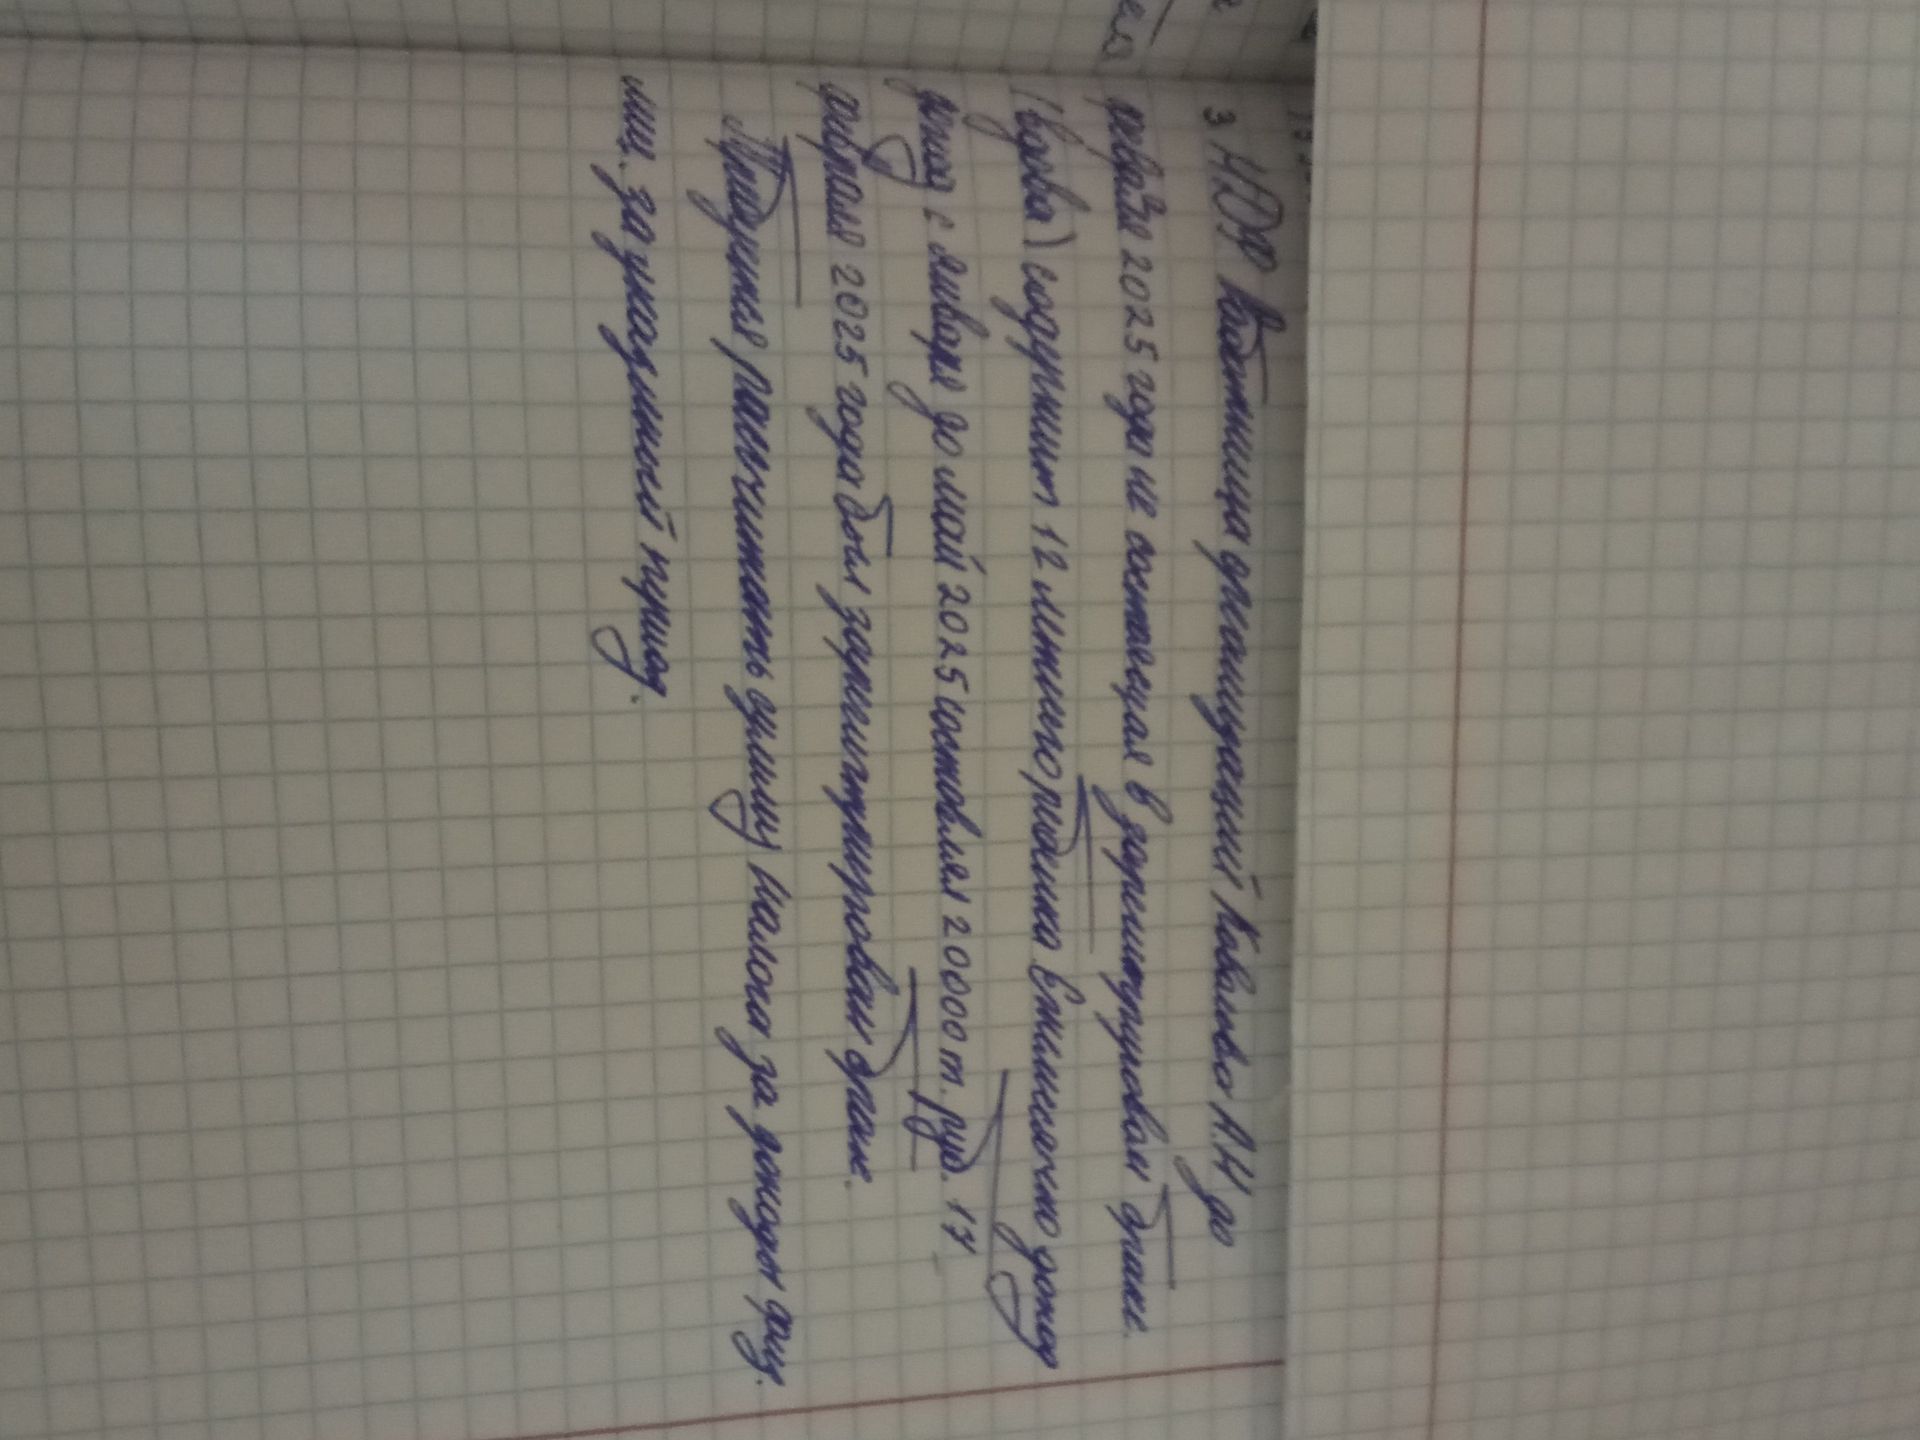 3 НДФЛ Работница организаций Ковалева А.Н до
февраля 2025 года не состоящая в зарегистрированом браке.
(вдова) содержит 12 летнего ребенка. Ежемесячно доход
доход с января до май 2025 составлял 20000 т. руб. 17
февраля 2025 года был зарегистрирован браке.
Требуется рассчитать сумму налога за доходы физ.
лиц. за указанный период.